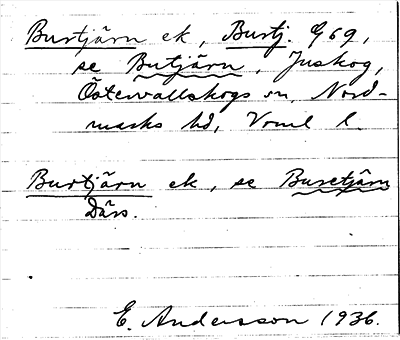 Burtjärn ek, Burtj. G69,
se Butjärn, Juskog,
Östervallskogs sn, Nord-
marks hd, Vrml l.
Burtjärn ek, se Buretjärn
Därs.
E. Andersson 1936.